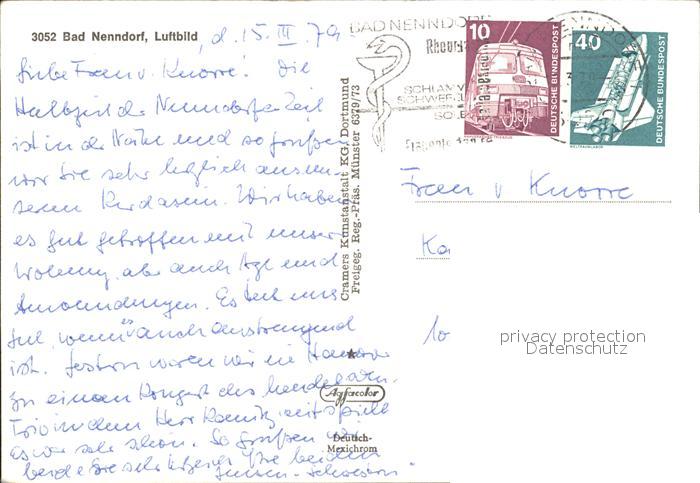 3052 Bad Nenndorf, Luftbild
, d. 15. III. 79.
Liebe Frau v. Knorre! Die
Halbzeit der Nenndorfer Zeit
ist in der Nähe und so grüßen
wir Sie sehr herzlich aus un-
serem Kurdasein. Wir haben
es gut getroffen mit unserer
Wohnung, aber auch Arzt und
Anwendungen. Es tut uns
gut, wenn es auch anstrengend
ist. Gestern waren wir in Hannover
zu einem Konzert des
Trio in dem Herr mitspielt
Es war sehr schön. So grüßen wir
beide Sie sehr herzlich Ihre beiden
Jensen-Schwestern
Cramers Kunstanstalt KG, Dortmund
Freigeg. Reg.-Präs. Münster 6379/73
Agfacolor
Deutsch-
Mexichrom
BAD NENNDORF
Rheuma
SCHLAMM
SCHWEFEL
SOLE
10
DEUTSCHE BUNDESPOST
40
DEUTSCHE BUNDESPOST
WELTRAUMLABOR
Frau v Knorre
Ka
10
privacy protection
Datenschutz